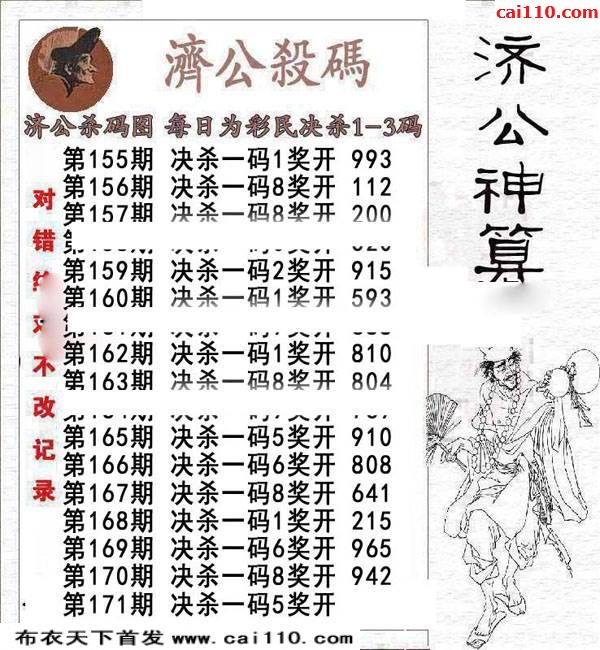 cai110.com
濟公殺碼
济公神算
济公杀码图 每日为彩民决杀1-3码
第155期 决杀一码1奖开 993
第156期 决杀一码8奖开 112
第157期 决杀一码8奖开 200
第159期 决杀一码2奖开 915
第160期 决杀一码1奖开 593
第162期 决杀一码1奖开 810
第163期 决杀一码8奖开 804
第165期 决杀一码5奖开 910
第166期 决杀一码6奖开 808
第167期 决杀一码8奖开 641
第168期 决杀一码1奖开 215
第169期 决杀一码6奖开 965
第170期 决杀一码8奖开 942
第171期 决杀一码5奖开
对错
不改记录
布衣天下首发 www.cai110.com